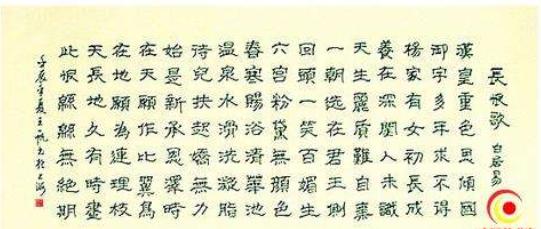 長恨歌 白居易
漢皇重色思傾國
御宇多年求不得
楊家有女初長成
養在深閨人未識
天生麗質難自棄
一朝選在君王側
回頭一笑百媚生
六宮粉黛無顏色
春寒賜浴清華池
溫泉水滑洗凝脂
侍兒扶起嬌無力
始是新承恩澤時
在天願作比翼鳥
在地願為連理枝
天長地久有時盡
此恨緜緜無絕期
壬辰年夏王帆書於上海